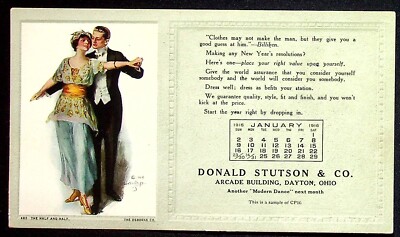 "Clothes may not make the man, but they give you a
good guess at him."—Billiken.
Making any New Year's resolutions?
Here's one—place your right value upon yourself.
Give the world assurance that you consider yourself
somebody and the world will consider you somebody.
Dress well; dress as befits your station.
We guarantee quality, style, fit and finish, and you won't
kick at the price.
Start the year right by dropping in.
1916 JANUARY 1916
SUN MON TUE WED THU FRI SAT
1
2 3 4 5 6 7 8
9 10 11 12 13 14 15
16 17 18 19 20 21 22
23/30 24/31 25 26 27 28 29
DONALD STUTSON & CO.
ARCADE BUILDING, DAYTON, OHIO
Another "Modern Dance" next month
This is a sample of
THE HALF AND HALF.
THE OSBORNE CO.